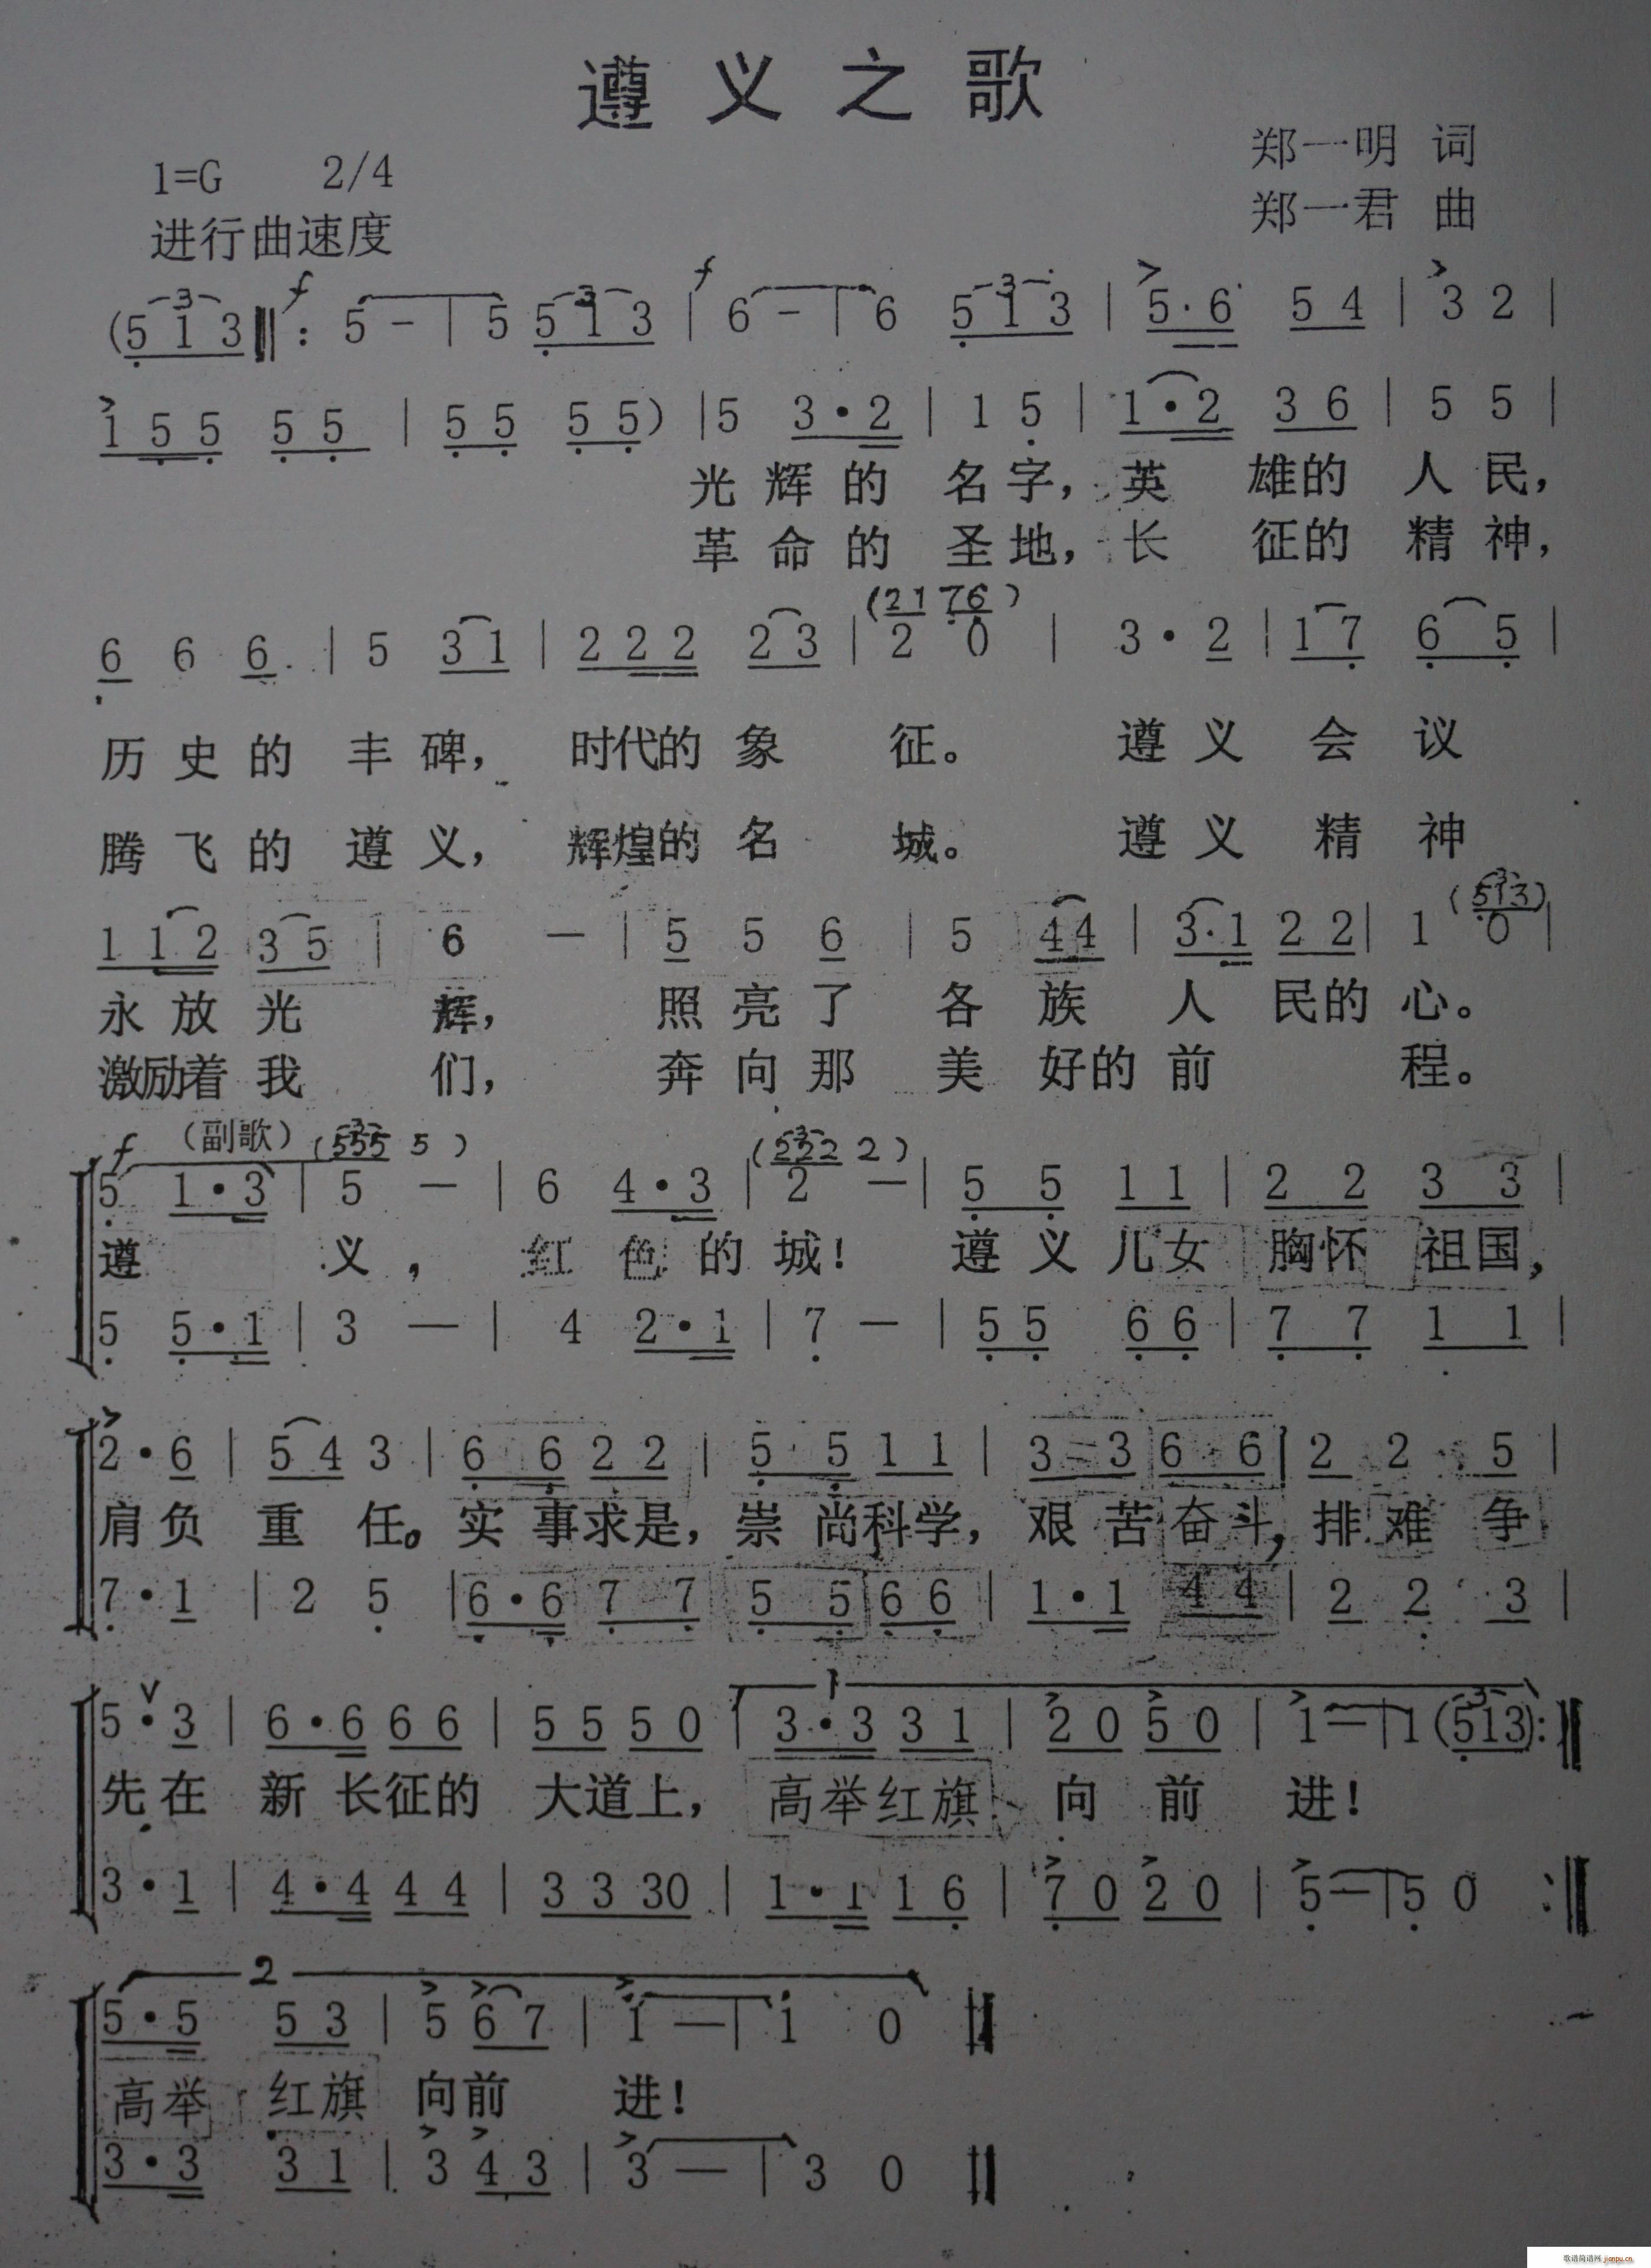 遵义之歌
郑一明 词
1=G 2/4
郑一君 曲
进行曲速度
(5 1 3 ‖: 5 - | 5 5 1 3 | 6 - | 6 5 1 3 | 5·6 5 4 | 3 2 |
1 5 5 5 5 | 5 5 5 5) | 5 3·2 | 1 5 | 1·2 3 6 | 5 5 |
光辉的名字，英雄的人民，
革命的圣地，长征的精神，
(2 1 7 6)
6 6 6 | 5 3 1 | 2 2 2 2 3 | 2 0 | 3·2 | 1 7 6 5 |
历史的丰碑，时代的象征。遵义会议
腾飞的遵义，辉煌的名城。遵义精神
(5 1 3)
1 1 2 3 5 | 6 — | 5 5 6 | 5 4 4 | 3·1 2 2 | 1 0 |
永放光辉，照亮了各族人民的心。
激励着我们，奔向那美好的前程。
f (副歌) (5 5 5 5) (2 2 2 2)
5 1·3 | 5 — | 6 4·3 | 2 — | 5 5 1 1 | 2 2 3 3 |
遵义，红色的城！遵义儿女胸怀祖国，
5 5·1 | 3 — | 4 2·1 | 7 — | 5 5 6 6 | 7 7 1 1 |
2·6 | 5 4 3 | 6 6 2 2 | 5 5 1 1 | 3 3 6·6 | 2 2 5 |
肩负重任。实事求是，崇尚科学，艰苦奋斗，排难争
7·1 | 2 5 | 6·6 7 7 | 5 5 6 6 | 1·1 4 4 | 2 2 3 |
1
5·3 | 6·6 6 6 | 5 5 5 0 | 3·3 3 1 | 2 0 5 0 | 1 — | 1 (5 1 3) :‖
先在新长征的大道上，高举红旗向前进！
3·1 | 4·4 4 4 | 3 3 3 0 | 1·1 1 6 | 7 0 2 0 | 5 — | 5 0 :‖
2
5·5 5 3 | 5 6 7 | 1 — | 1 0 ‖
高举红旗向前进！
3·3 3 1 | 3 4 3 | 3 — | 3 0 ‖
歌谱简谱网 jianpu.cn